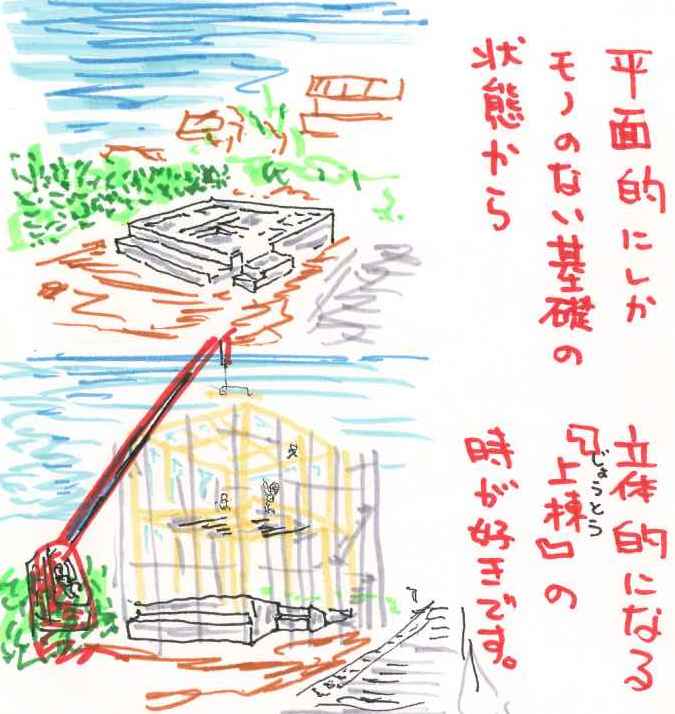 平面的にしか
モノのない基礎の
状態から
立体的になる
『上棟』の
じょうとう
時が好きです。